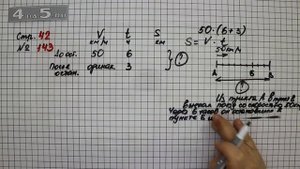 4 на 5
Стр. 42
№ 143
V км/ч t ч S км
До ост. 50 6
После остан. одинак. 3
?
50·(6+3)
S = V · t
50 км/ч
A B
?
Из пункта А в пункт В
выехал поезд со скоростью 50 км/ч
Через 6 часов он остановился в
пункте Б и